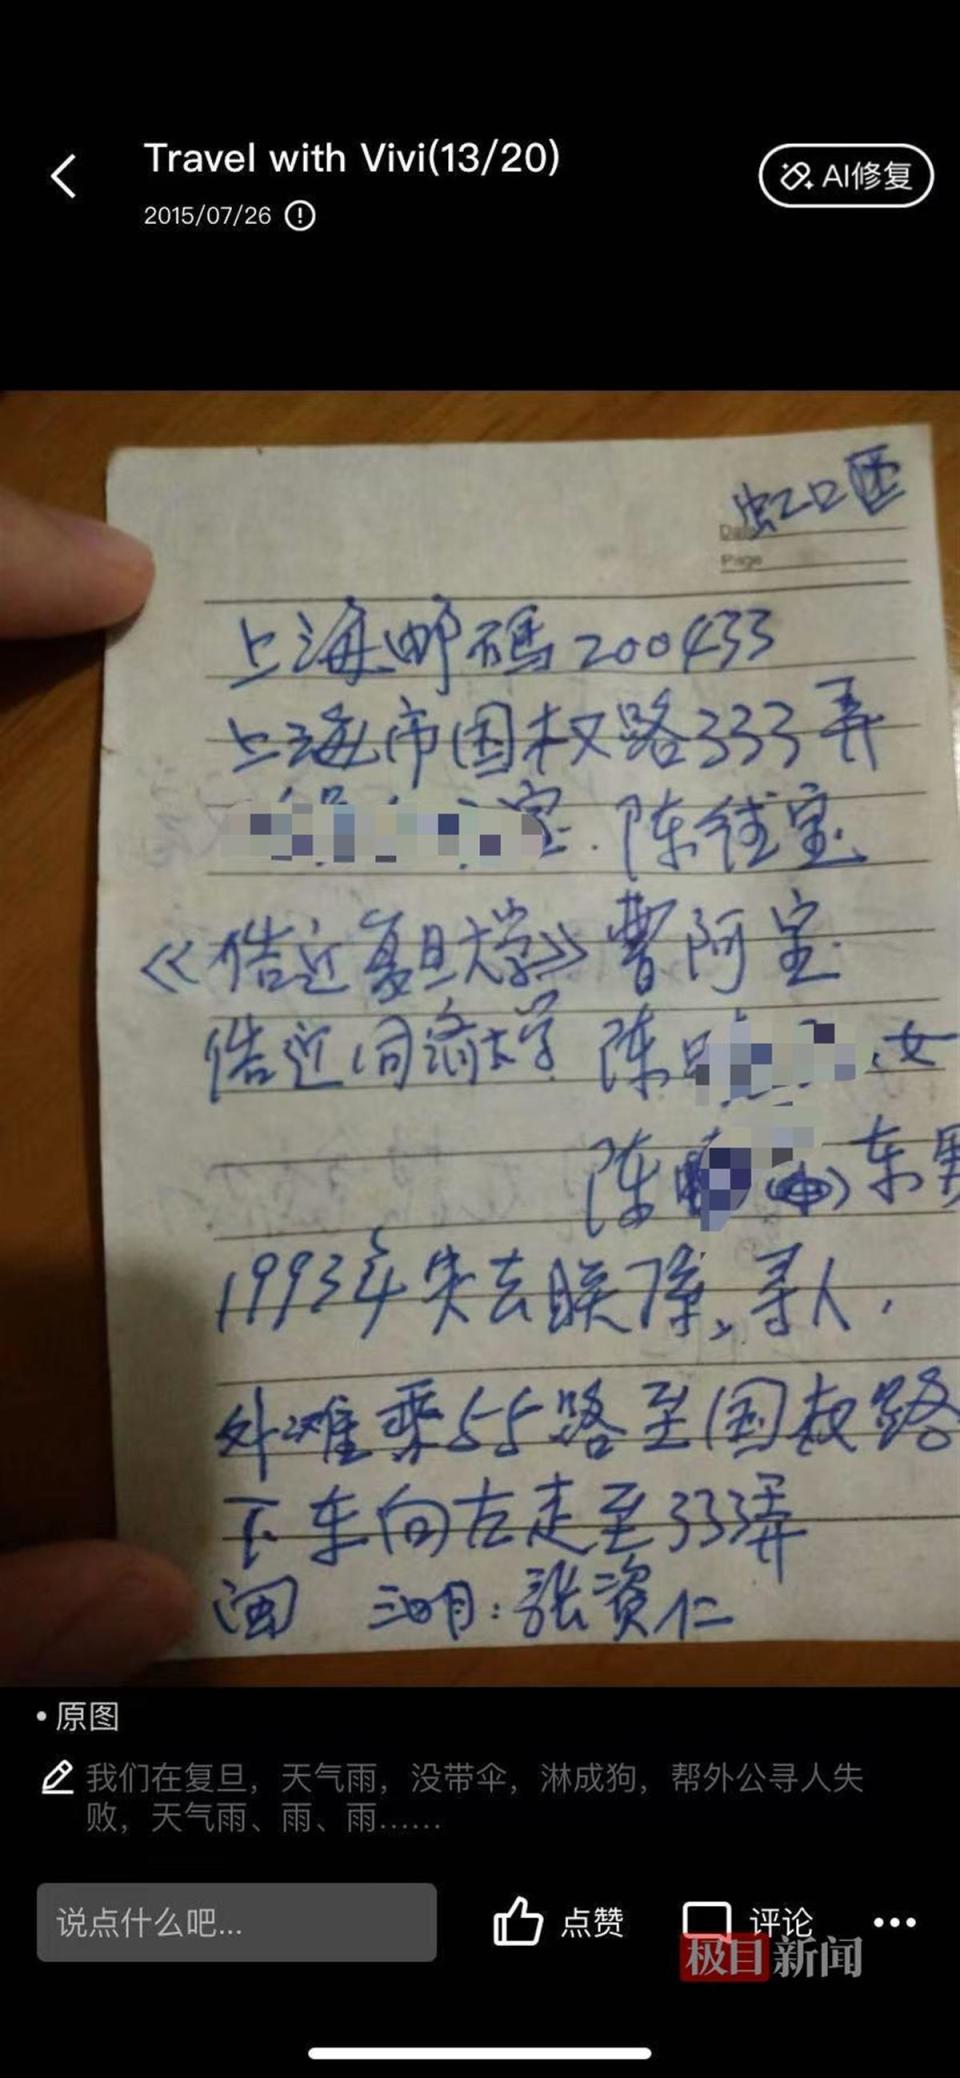 Travel with Vivi(13/20)
2015/07/26
AI修复
虹口区
Date
Page
上海邮码200433
上海市国权路333弄
宝.陈继宝
《倍近复旦大学》曹阿宝
倍近同济大学 陈 、女
陈 东男
1993年失去联系,寻人.
外滩乘55路至国权路
下车向左走至333弄
闽 三明:张资仁
•原图
我们在复旦，天气雨，没带伞，淋成狗，帮外公寻人失
败，天气雨、雨、雨……
说点什么吧...
点赞
评论
极目新闻